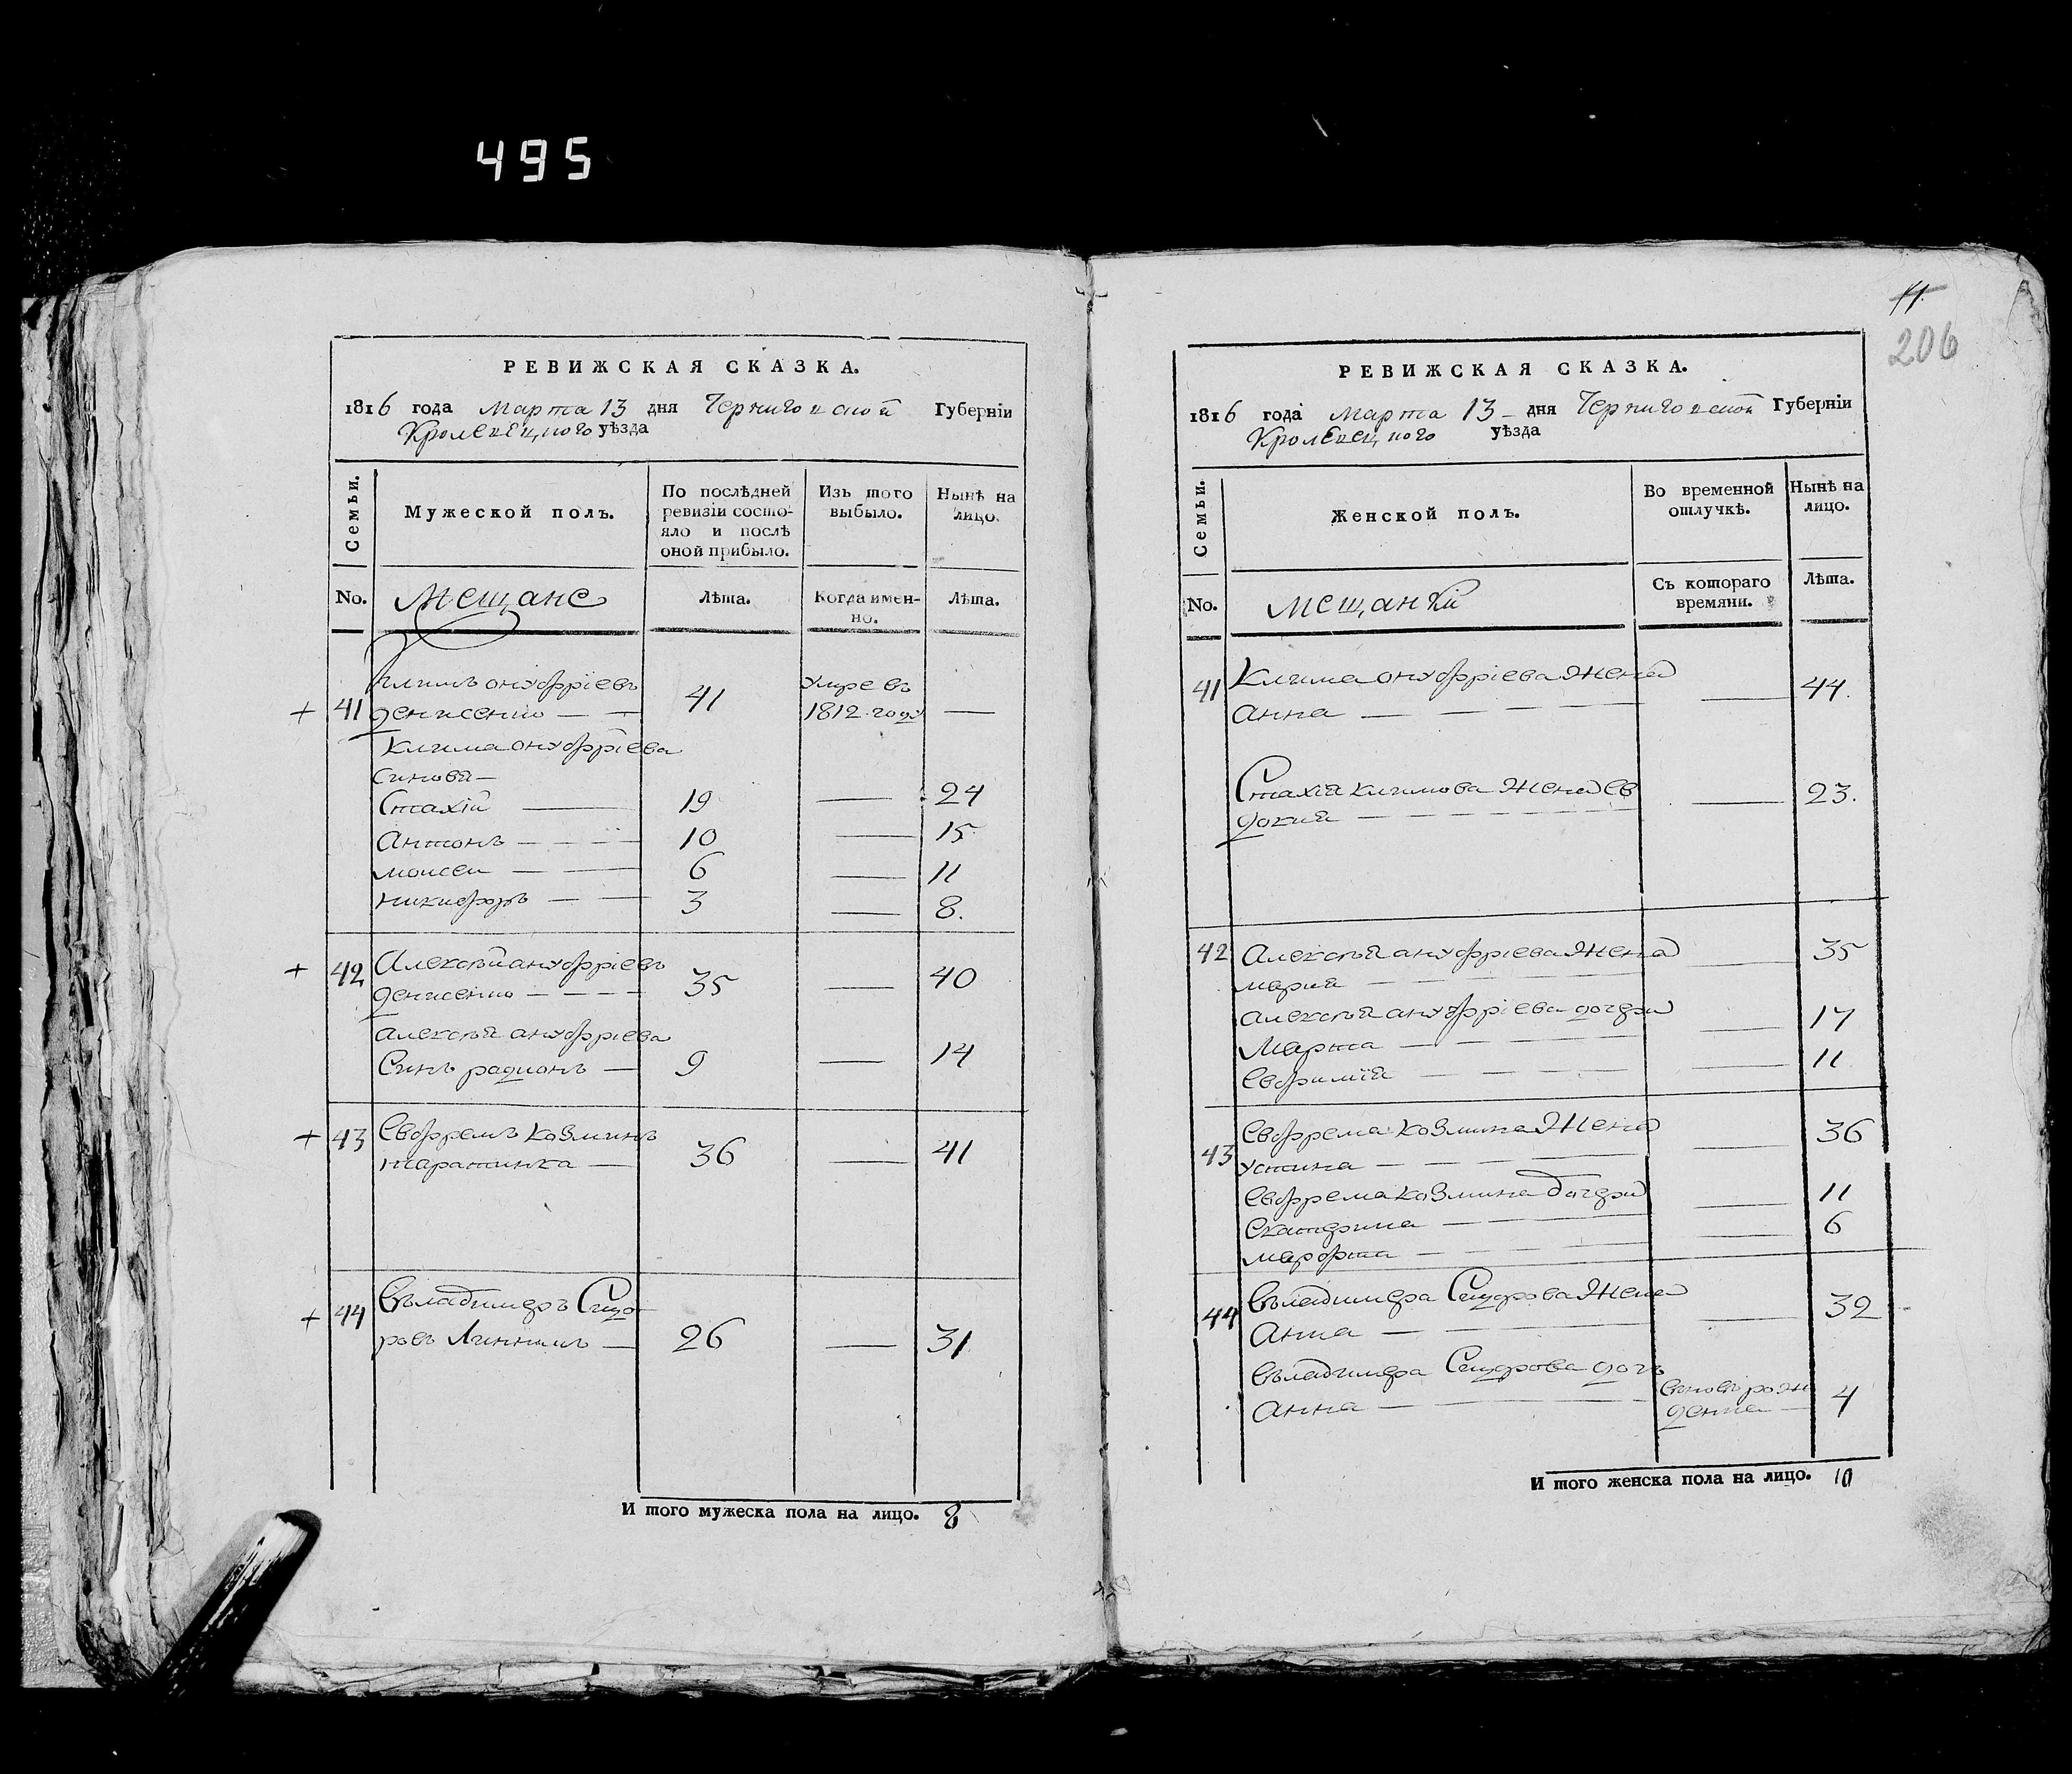 495
РЕВИЖСКАЯ СКАЗКА.
1816 года Марта 13 дня Черниговской Губерніи
Кролевецкого уѣзда
Семьи.
Мужеской полъ.
По послѣдней ревизіи состо-
яло и послѣ оной прибыло.
Изъ того выбыло.
Нынѣ на лицо.
No. Мещане Лѣта. Когда имен-
но. Лѣта.
+ 41 Климъ онуфріевъ
денисенко — — 41 Умре въ 1812 году —
Клима онуфріева
синовя —
Стахій — 19 — 24
Антонъ — 10 — 15
моисеи — 6 — 11
никифоръ — 3 — 8.
+ 42 Алексѣй ануфріевъ
денисенко — 35 — 40
алексѣя ануфріева
Синъ радионъ — 9 — 14
+ 43 Евфремъ козминъ
таратинка — 36 — 41
+ 44 Въладимеръ Сидо
ровъ — 26 — 31
И того мужеска пола на лицо. 8
11.
206
РЕВИЖСКАЯ СКАЗКА.
1816 года Марта 13 – дня Черниговской Губерніи
Кролевецкого уѣзда
Семьи.
Женской полъ.
Во временной отлучкѣ.
Нынѣ на лицо.
No. мещанки Съ котораго времяни. Лѣта.
41 Клима онуфріева Жена
анна — — 44.
Стахія климова Жена ев
докия — — 23.
42 Алексѣя ануфріева Жена
мария — — 35
алексѣя ануфріева дочери
Марта — — 17
Евфимія — — 11
43 Евфрема козмина Жена
устина — — 36
Евфрема козмина дочери
Екатерина — — 11
марфта — — 6
44 Въладимера Сидорова Жена
Анна — — 32
Въладимера Сидорова дочь
анна — вновъ рож
денна — 4
И того женска пола на лицо. 10